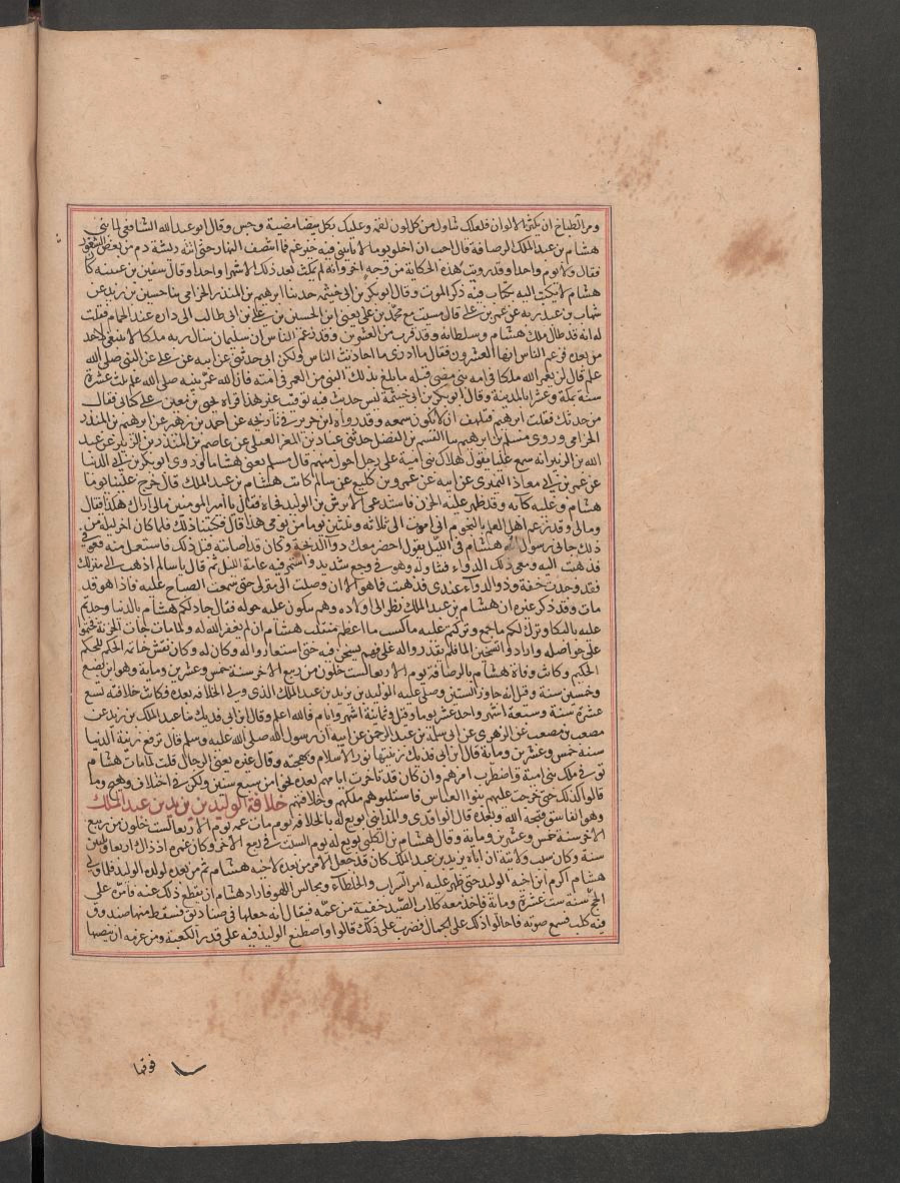 ومر الطباخ ان يكثر الالوان فلعلك تناول من كل لون لقمة وعليك بكل بيضا مضية وجس وقال ابو عبد الله الشافعي لما بنى
هشام بن عبد الملك الرصافة قال احب ان اخلو يوما لا ياتيني فيه خبر غم فما انتصف النهار حتى اتته ريشة دم من بعض الثغور
فقال ولا يوم واحد وقد رويت هذه الحكاية من وجه اخر وانه لم يمكث بعد ذلك الا شهرا واحدا وقال سفين بن عيينه كا
هشام لا يكتب اليه بكتاب فيه ذكر الموت وقال ابو بكر بن ابي خيثمه حدثنا ابرهيم بن المنذر الحزامي ثنا حسين بن زيد عن
شهاب بن عبد ربه عن عمر بن علي قال مشيت مع محمد بن علي يعني ابن الحسين بن علي بن ابي طالب الى داره عند الحمام فقلت
له انه قد طال ملك هشام وسلطانه وقد قرب من العشرين وقد زعم الناس ان سليمان سال ربه ملكا لا ينبغي لاحد
من بعده فزعم الناس انها العشرون فقال ما ادري ما احاديث الناس ولكن ابي حدثني عن ابيه عن علي عن النبي صلى الله
عليه قال لن يعمر الله ملكا في امه نبي مضى قبله ما بلغ بذلك النبي من العمر في امته فان الله عمر نبيه صلى الله عليه ثلث عشرة
سنة بمكة وعشرا بالمدينة وقال ابو بكر بن ابي خيثمة ليس حديث فيه توقيت غير هذا قراه يحيى بن معين على كتابي فقال
من حدثك فقلت ابرهيم فتلهف ان لا يكون سمعه وقد رواه ابن جرير في تاريخه عن احمد بن زهير عن ابرهيم بن المنذر
الحزامي وروى مسلم بن ابرهيم ثنا القسم بن الفضل حدثني عباد بن المعر العبلي عن عاصم بن المنذر بن الزبير عن عبد
الله بن الزبير انه سمع عليا يقول هلاك بني امية على رجل احول منهم قال مسلم يعني هشاما وروى ابو بكر بن ابي الدنيا
عن عمر بن ابي معاذ النميري عن ابيه عن عمرو بن كليع عن سالم كاتب هشام بن عبد الملك قال خرج علينا يوما
هشام وعليه كآبه وقد ظهر عليه الحزن فاستدعى الابرش بن الوليد فجاه فقال يا امير المومنين مالي اراك هكذا فقال
ومالي وقد زعم اهل العلم بالنجوم اني اموت الى ثلاثه وثلثين يوما من يومي هذا قال فكتبنا ذلك فلما كان اخر ليلة من
ذلك جاني رسول هشام في الليل يقول احضر معك دوا الذبحة وكان قد اصابته قبل ذلك فاستعمل منه فعوفي
فذهبت اليه ومعي ذلك الدواء فتناوله وهو في وجع شديد واستمر فيه عامة الليل ثم قال يا سالم اذهب الى منزلك
فقد وجدت خفة وذر الدواء عندي فذهبت فما هو الا ان وصلت الى منزلي حتى سمعت الصياح عليه فاذا هو قد
مات وقد ذكر غيره ان هشام بن عبد الملك نظر الى اولاده وهم يبكون عليه حوله فقال جاد لكم هشام بالدنيا وجدتم
عليه بالبكا وترك لكم ما جمع وتركتم عليه ما كسب ما اعظم منقلب هشام ان لم يغفر الله له ولما مات جات الخزنة فختموا
على حواصله وارادوا تسخين الما فلم يقدروا له على فحم يسخن فيه حتى استعاروا له وكان له وكان نقش خاتمه الحكم للحكم
الحكيم وكانت وفاة هشام بالرصافة يوم الاربعا لست خلون من ربيع الاخر سنة خمس وعشرين وماية وهو ابن بضع
وخمسين سنة وقيل انه جاوز الستين وصلى عليه الوليد بن يزيد بن عبد الملك الذي ولي الخلافة بعده فكانت خلافته تسع
عشرة سنة وسبعة اشهر واحد عشر يوما وقيل وثمانية اشهر وايام فالله اعلم وقال ابن ابي فديك ثنا عبد الملك بن زيد عن
مصعب بن مصعب عن الزهري عن ابي سلمة بن عبد الرحمن عن ابيه ان رسول الله صلى الله عليه وسلم قال ترفع زينة الدنيا
سنة خمس وعشرين وماية قال ابن ابي فديك زينتها نور الاسلام وبهجته وقال غيره يعني الرجال قلت لما مات هشام
توفي ملك بني امية واضطرب امرهم وان كان قد تاخرت ايامهم بعده نحوا من سبع سنين ولكن في اختلاف وهيج وما
قالوا كذلك حتى خرجت عليهم بنوا العباس فاستلبوهم ملكهم وخلافتهم خلافة الوليد بن يزيد بن عبد الملك
وهو الفاسق قبحه الله وبعده قال الواقدي والمدائني بويع له بالخلافة يوم مات عمه يوم الاربعا لست خلون من ربيع
الاخر سنة خمس وعشرين وماية وقال هشام بن الكلبي بويع له يوم السبت في ربيع الاخر وكان عمره اذ ذاك اربعا وثلثين
سنة وكان سبب ولايته ان اباه يزيد بن عبد الملك كان قد جعل الامر من بعده لاخيه هشام ثم من بعده لولده الوليد فلما ولي
هشام اكرم ابن اخيه الوليد حتى ظهر عليه امر الشراب والخلطاء ومجالس اللهو فاراد هشام ان يقطع ذلك عنه فامره على
الحج سنة ست عشرة وماية فاخذ معه كلاب الصيد خفية من عمه فيقال انه جعلها في صناديق فسقط منها صندوق
فيه كلب فسمع صوته فاحالوا ذلك على الجمال فضرب على ذلك قالوا واصطنع الوليد قبة على قدر الكعبة ومن عزمه ان ينصبها
فوقها